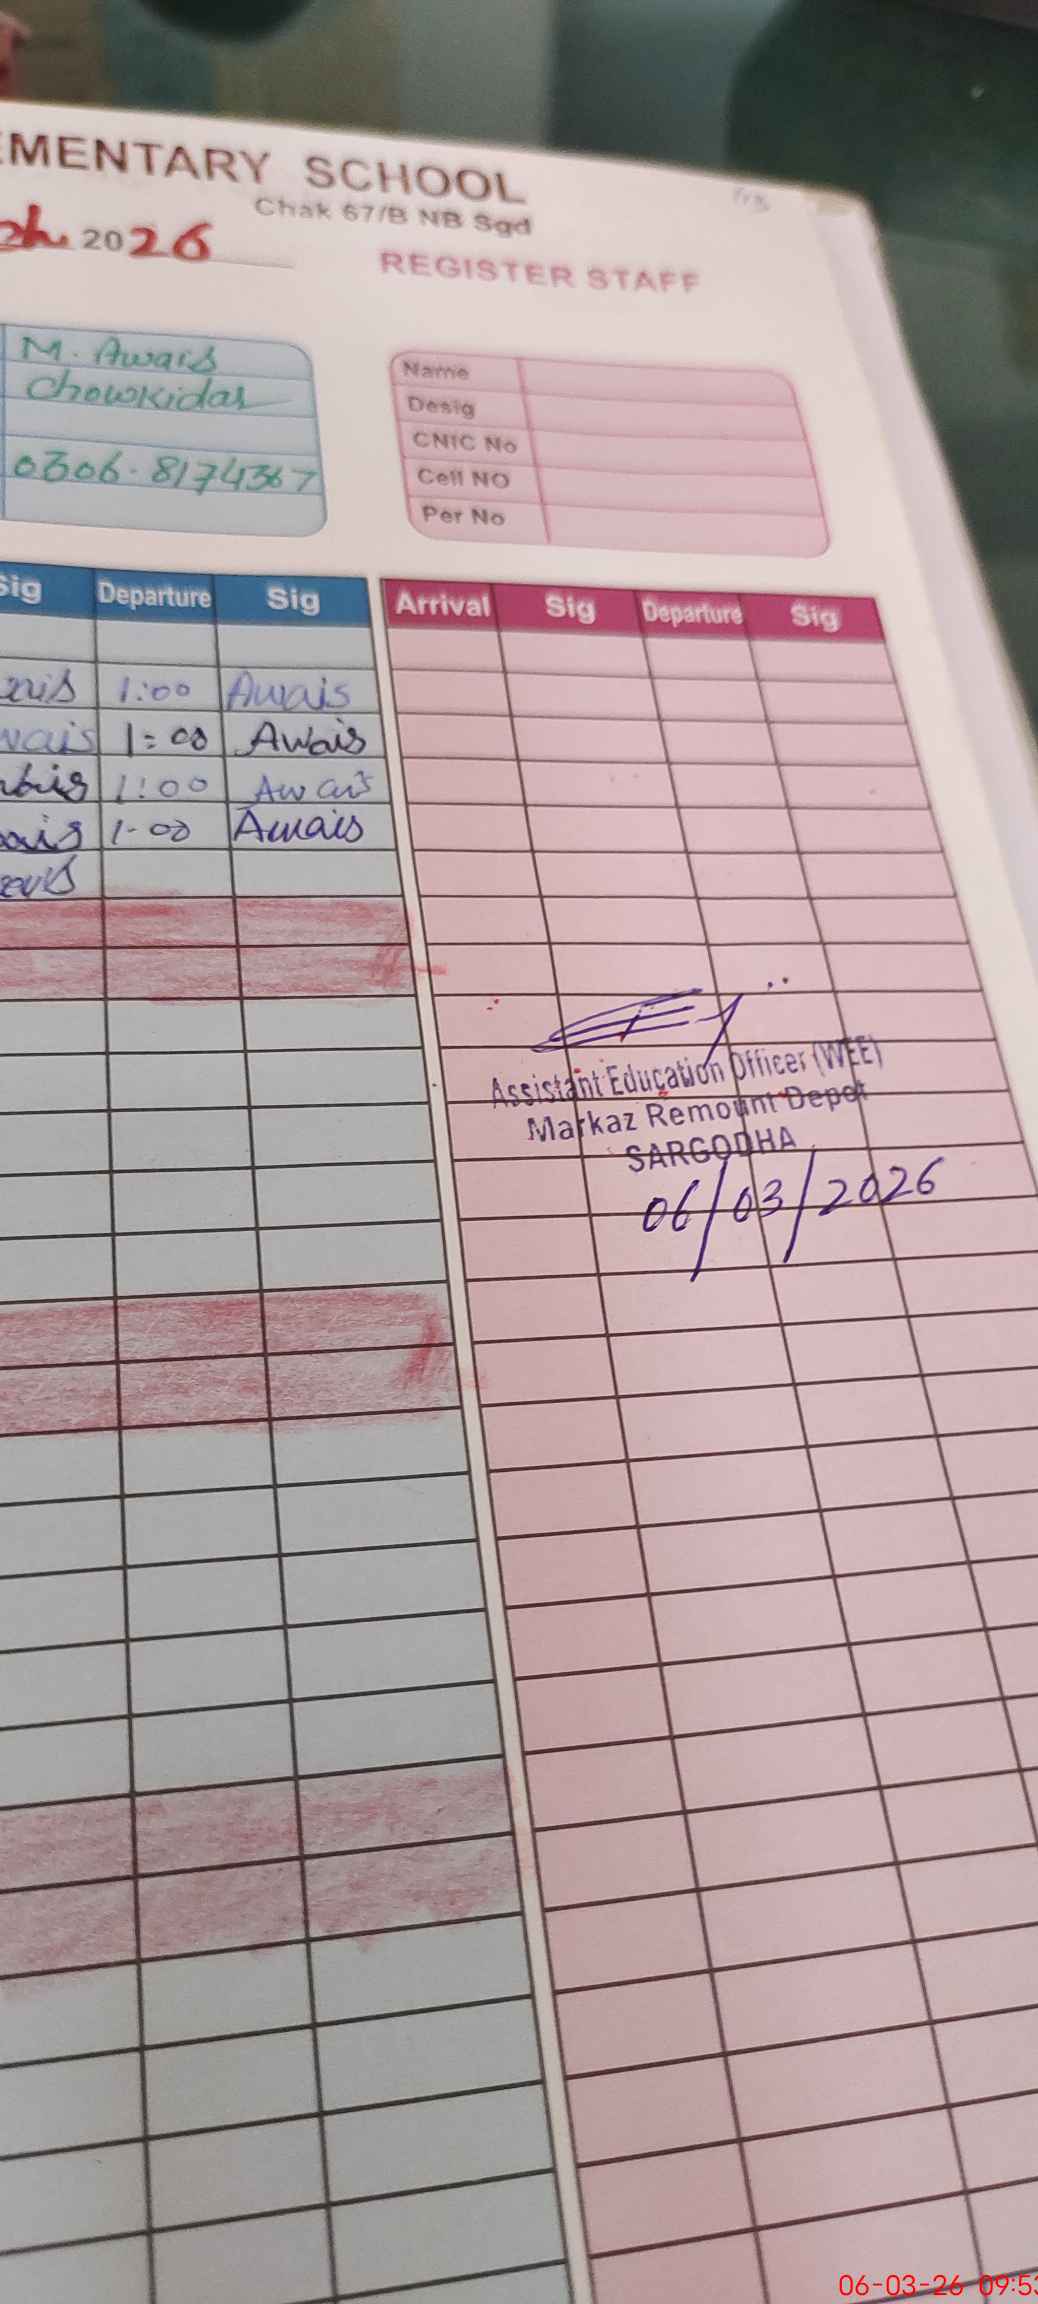 EMENTARY SCHOOL
Chak 67/B NB Sgd
2026
REGISTER STAFF
M. Awais
Chowkidar
0306-8174367
Name
Desig
CNIC No
Cell NO
Per No
Sig Departure Sig
Arrival Sig Departure Sig
1:00 Awais
wais 1:00 Awais
1:00 Awais
1-00 Awais
Assistant Education Officer (WEE)
Markaz Remount Depot
SARGODHA
06/03/2026
06-03-26 09:53